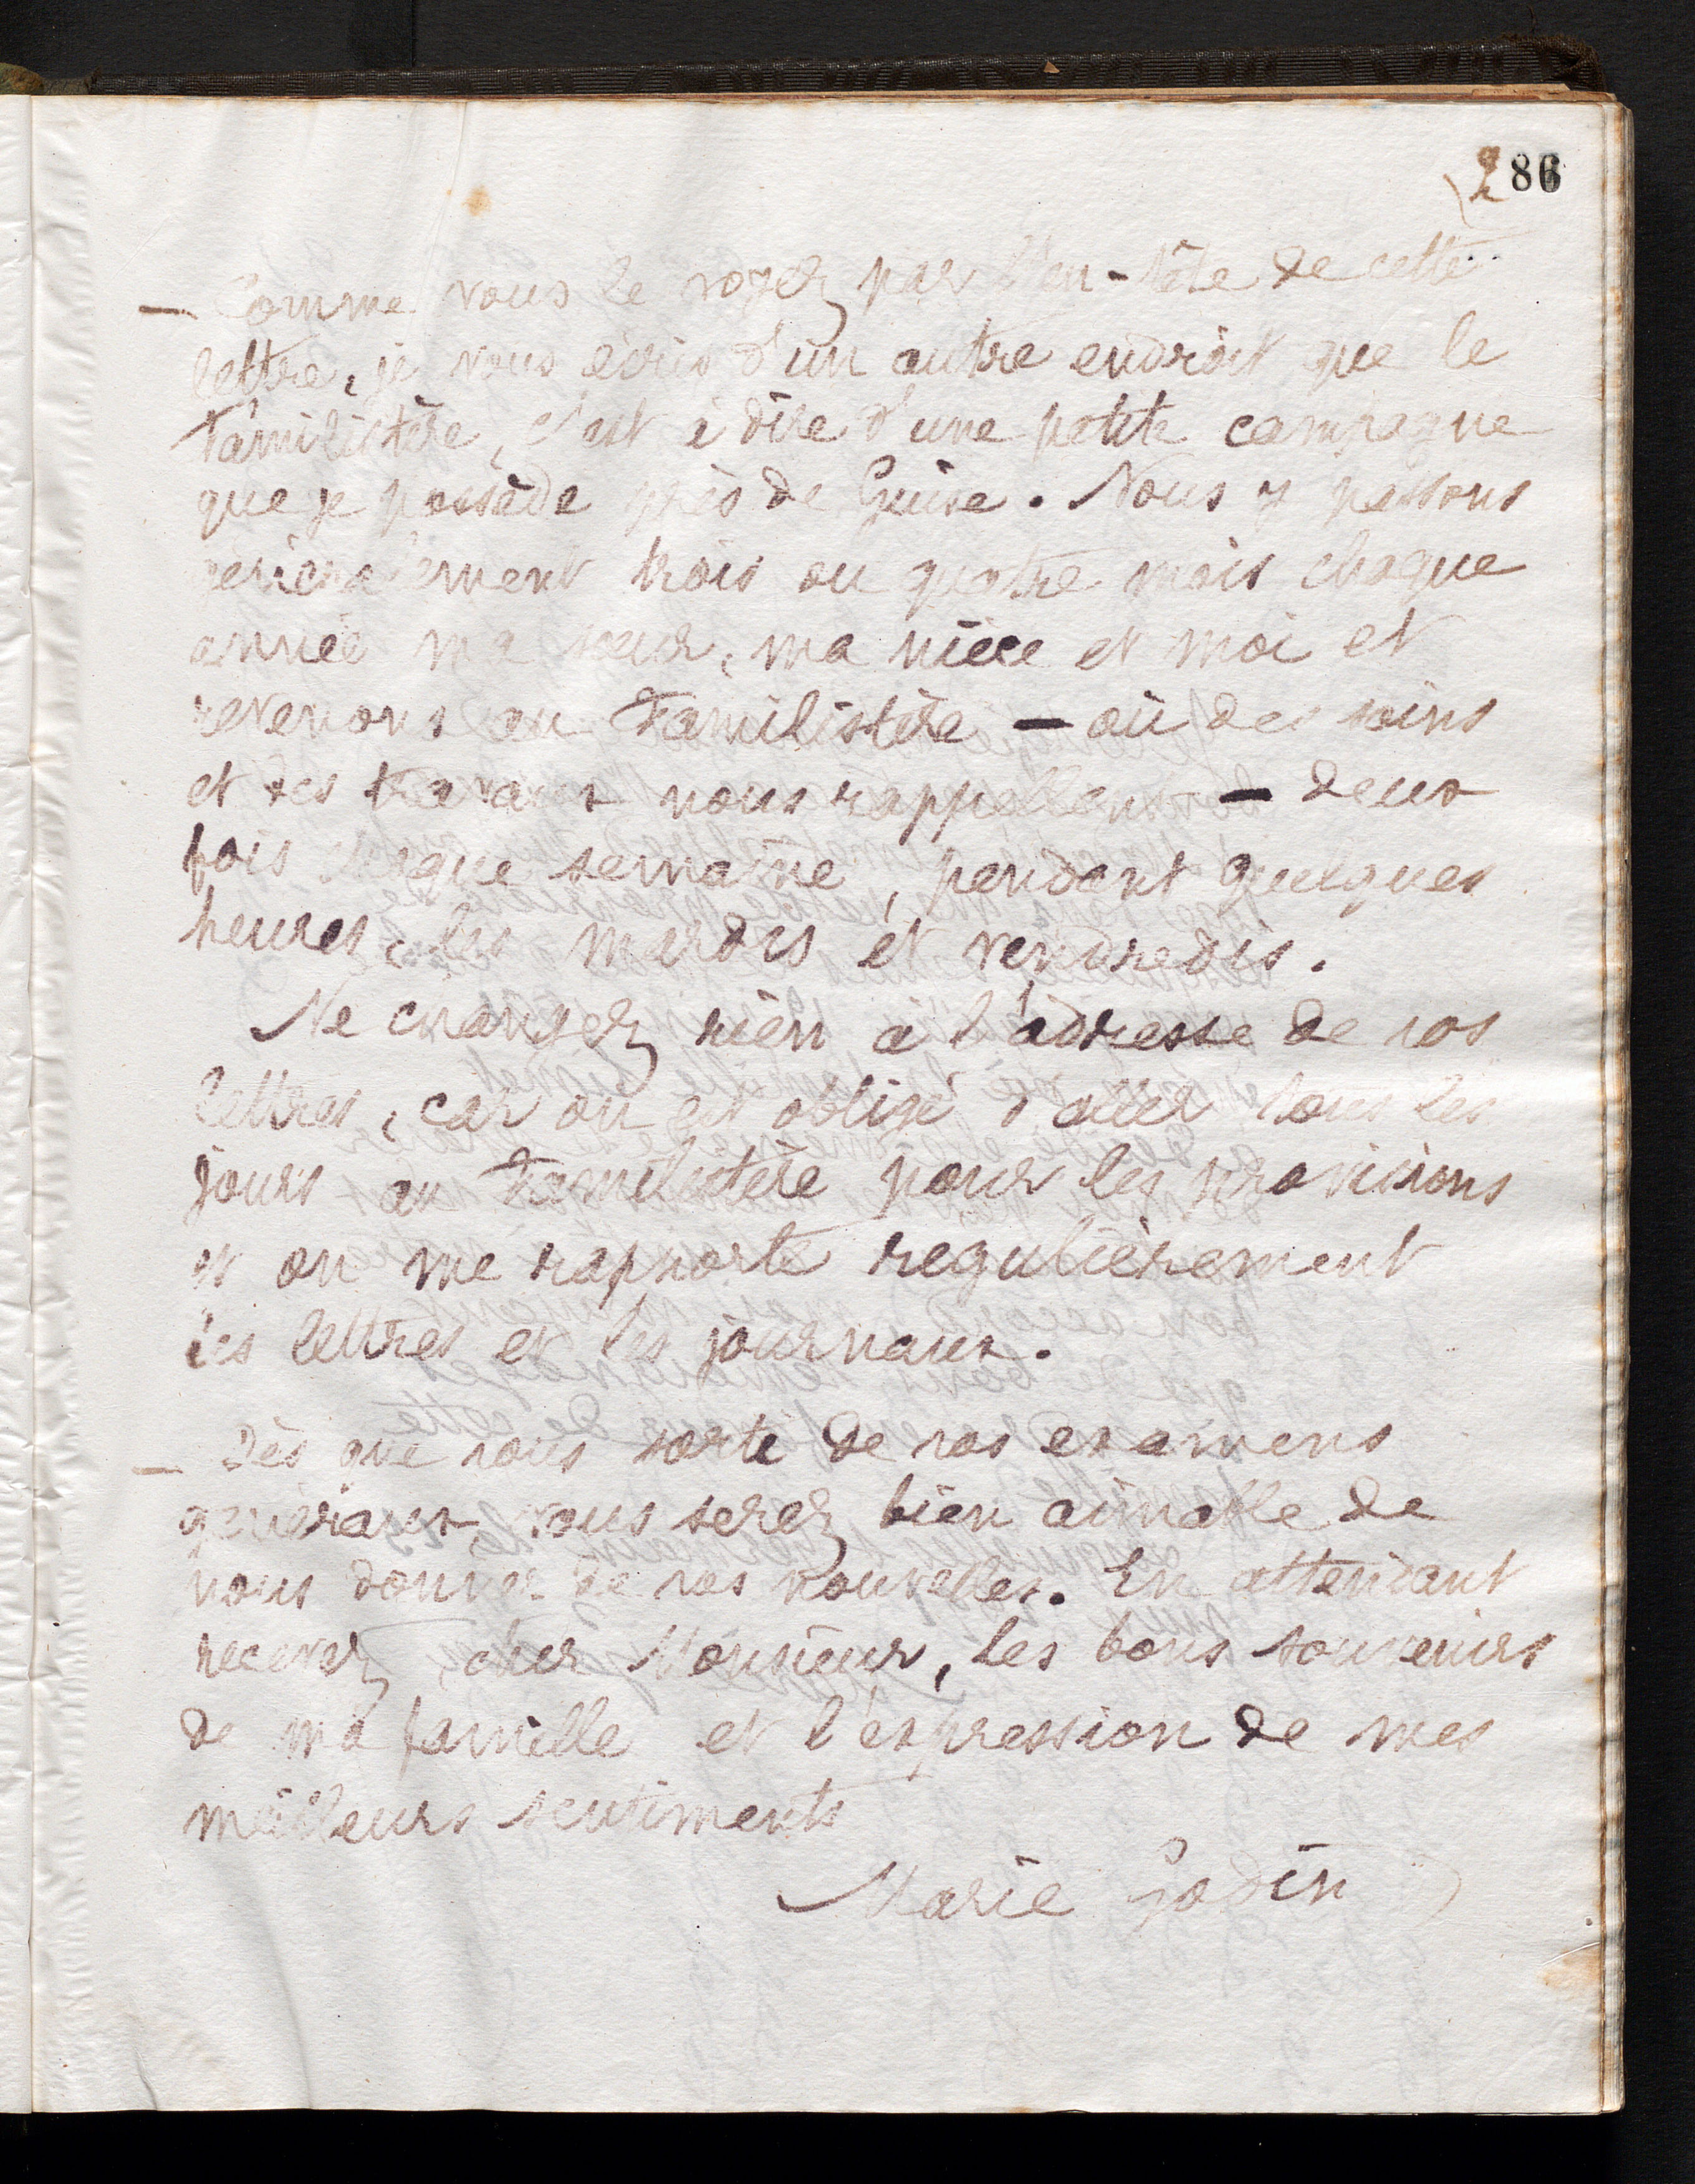 286
— Comme vous le voyez par l'en-tête de cette
lettre, je vous écris d'un autre endroit que le
Familistère, c'est à dire d'une petite campagne
que je possède près de Guise. Nous y passons
généralement trois ou quatre mois chaque
année ma sœur, ma nièce et moi et
revenons au Familistère — où des soins
et des travaux nous rappellent — deux
fois chaque semaine, pendant quelques
heures, les mardis et vendredis.
Ne changez rien à l'adresse de vos
lettres, car on est obligé d'aller tous les
jours au Familistère pour les provisions
et on me rapporte regulièrement
les lettres et les journaux.
— Dès que vous sorti de vos examens
généraux, vous serez bien aimable de
nous donner de vos nouvelles. En attendant
recevez, cher Monsieur, les bons souvenirs
de ma famille et l'expression de mes
meilleurs sentiments
Marie Godin